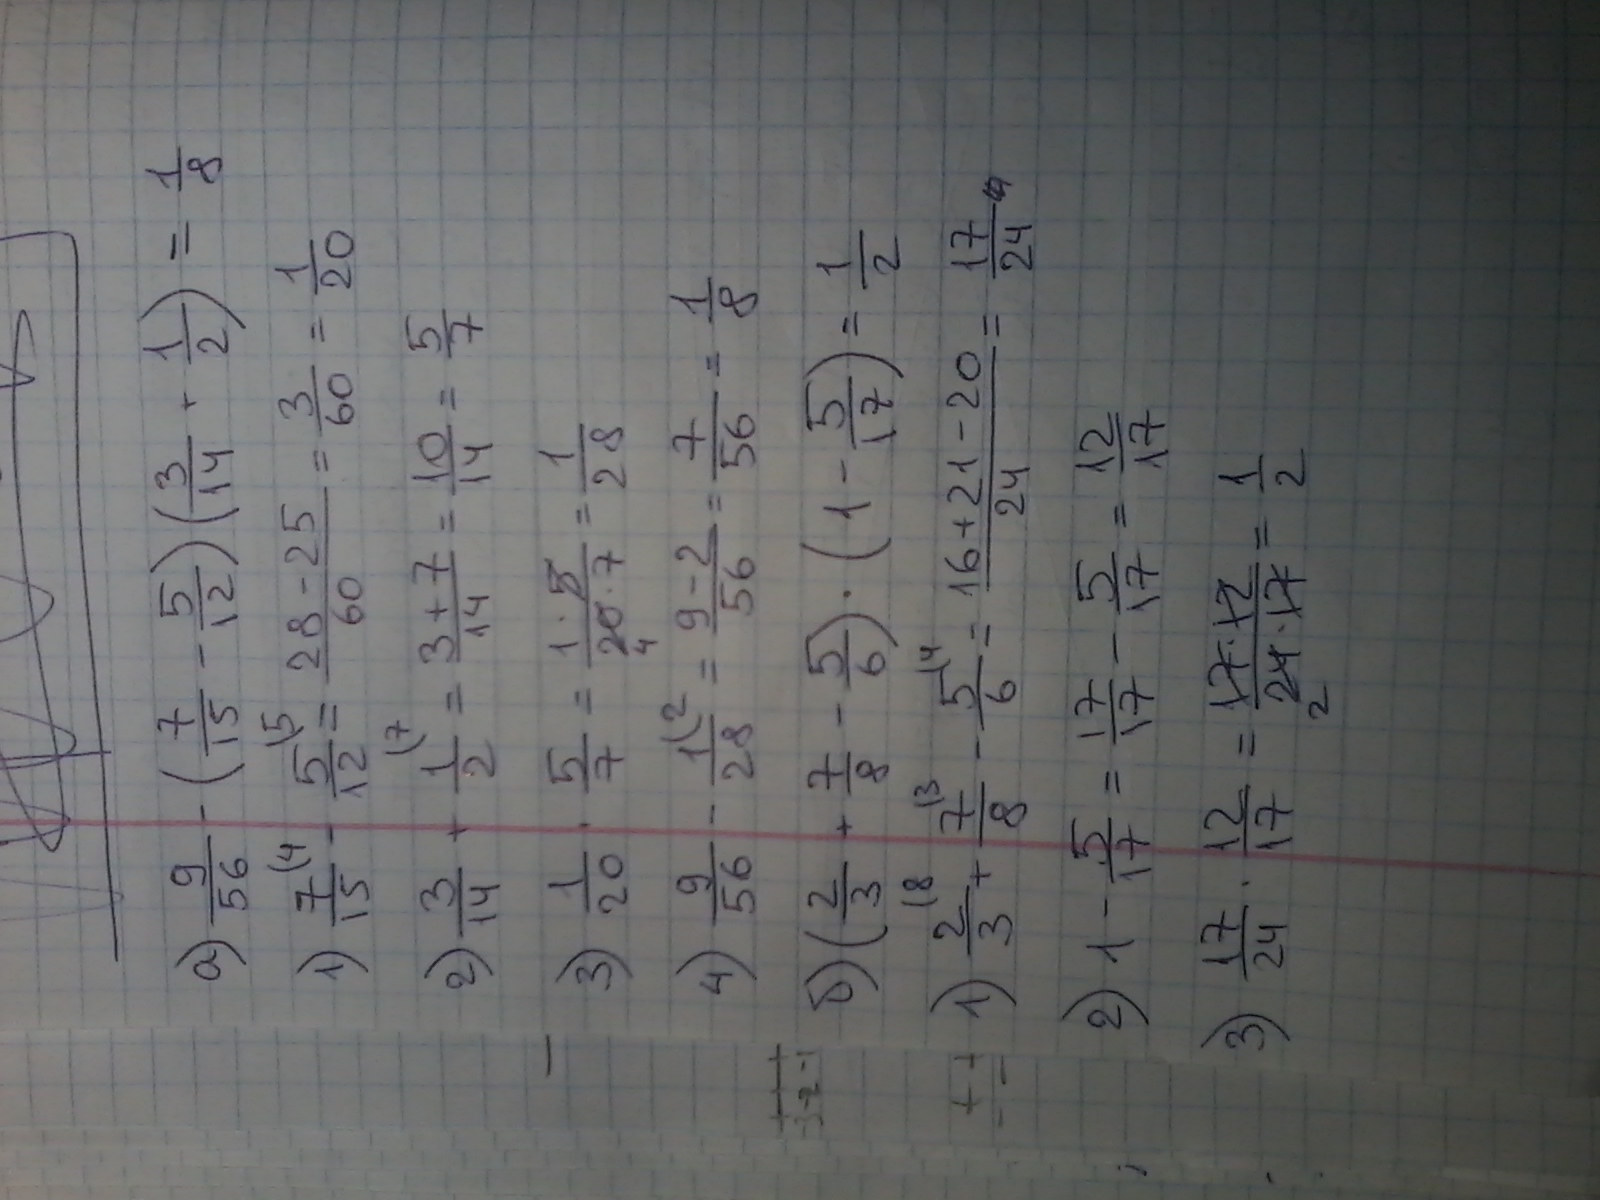 а) 9/56 - (7/15 - 5/12)(3/14 + 1/2) = 1/8
1) 7/15 (4 - 5/12 (5 = 28-25/60 = 3/60 = 1/20
2) 3/14 + 1/2 (7 = 3+7/14 = 10/14 = 5/7
3) 1/20 · 5/7 = 1·5/20·7 = 1/28
4
4) 9/56 - 1/28 (2 = 9-2/56 = 7/56 = 1/8
б) (2/3 + 7/8 - 5/6) · (1 - 5/17) = 1/2
1) 2/3 (8 + 7/8 (3 - 5/6 (4 = 16+21-20/24 = 17/24
2) 1 - 5/17 = 17/17 - 5/17 = 12/17
3) 17/24 · 12/17 = 17·12/24·17 = 1/2
2